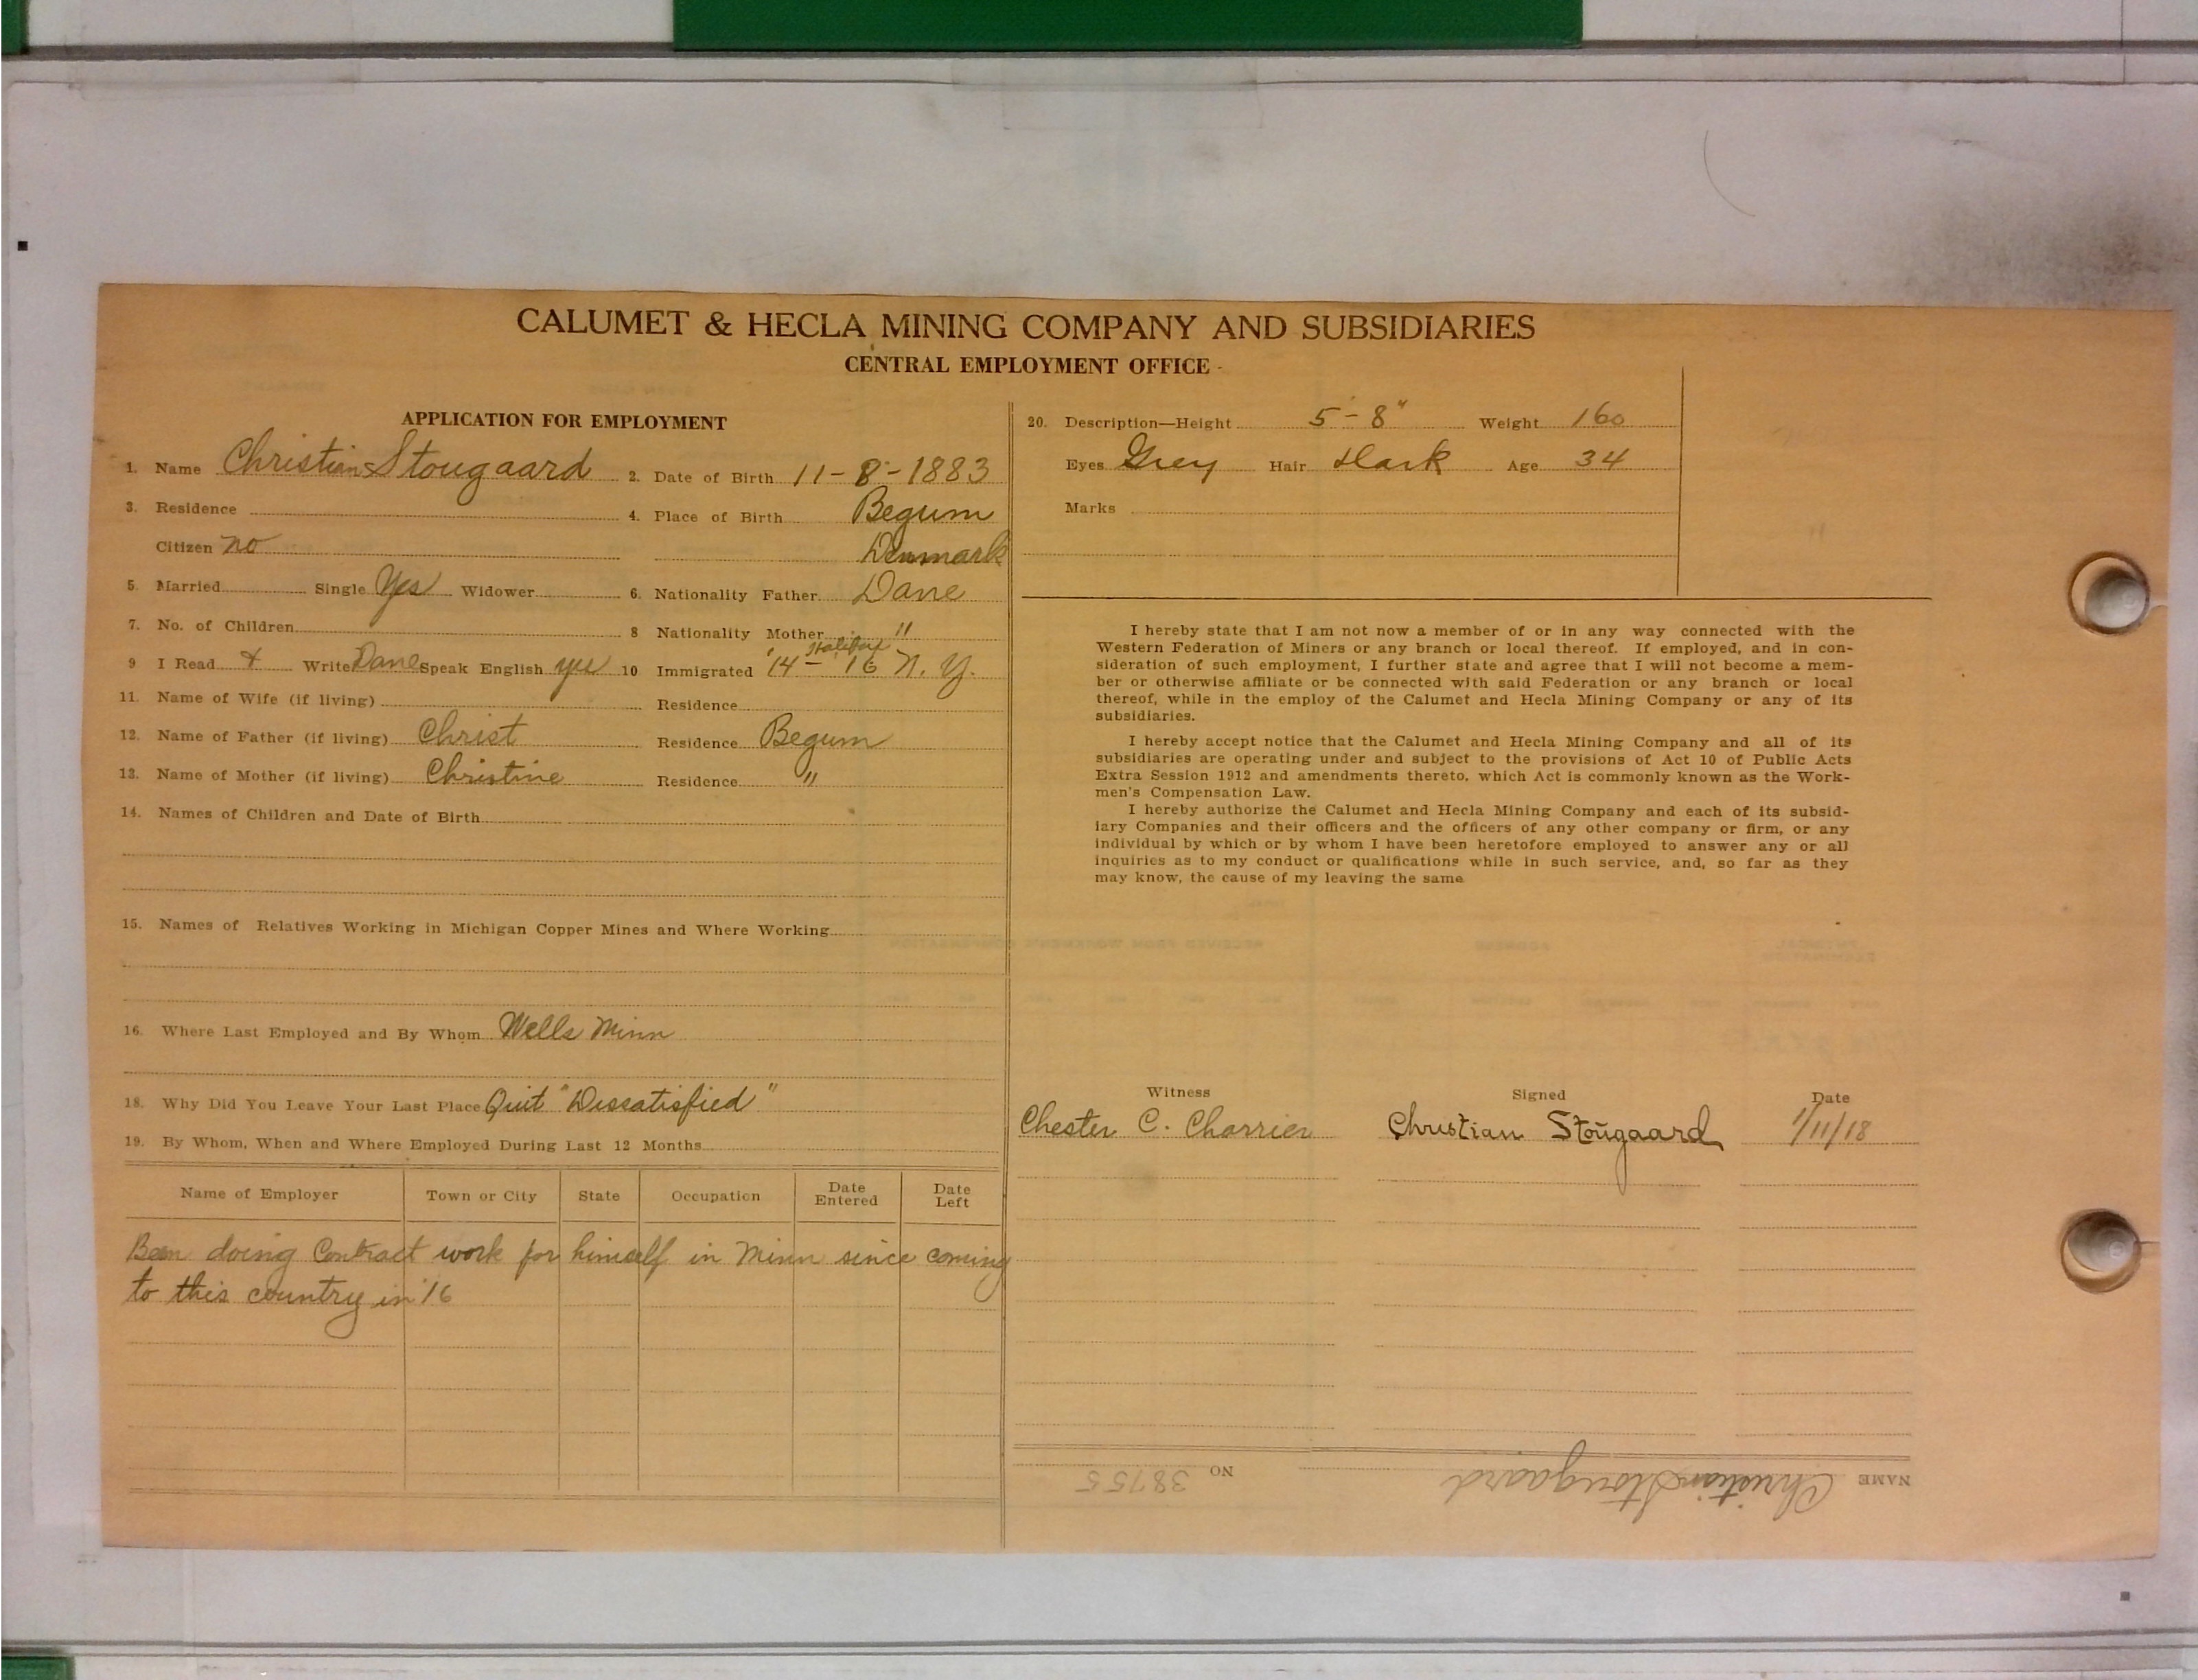 CALUMET & HECLA MINING COMPANY AND SUBSIDIARIES
CENTRAL EMPLOYMENT OFFICE
APPLICATION FOR EMPLOYMENT
1. Name Christian Stougaard 2. Date of Birth 11-8-1883
3. Residence 4. Place of Birth Begum
Citizen no Denmark
5. Married Single Yes Widower 6. Nationality Father Dane
7. No. of Children 8 Nationality Mother "
Halifax
9 I Read + Write Dane Speak English yes 10 Immigrated '14 - '16 N. Y.
11. Name of Wife (if living) Residence
12. Name of Father (if living) Christ Residence Begum
13. Name of Mother (if living) Christine Residence "
14. Names of Children and Date of Birth
15. Names of Relatives Working in Michigan Copper Mines and Where Working
16. Where Last Employed and By Whom Wells Minn
18. Why Did You Leave Your Last Place Quit "Dissatisfied"
19. By Whom, When and Where Employed During Last 12 Months
Name of Employer Town or City State Occupation Date Entered Date Left
Been doing Contract work for himself in Minn since coming
to this country in '16
20. Description—Height 5'-8" Weight 160
Eyes Grey Hair Dark Age 34
Marks
I hereby state that I am not now a member of or in any way connected with the
Western Federation of Miners or any branch or local thereof. If employed, and in con-
sideration of such employment, I further state and agree that I will not become a mem-
ber or otherwise affiliate or be connected with said Federation or any branch or local
thereof, while in the employ of the Calumet and Hecla Mining Company or any of its
subsidiaries.
I hereby accept notice that the Calumet and Hecla Mining Company and all of its
subsidiaries are operating under and subject to the provisions of Act 10 of Public Acts
Extra Session 1912 and amendments thereto, which Act is commonly known as the Work-
men's Compensation Law.
I hereby authorize the Calumet and Hecla Mining Company and each of its subsid-
iary Companies and their officers and the officers of any other company or firm, or any
individual by which or by whom I have been heretofore employed to answer any or all
inquiries as to my conduct or qualifications while in such service, and, so far as they
may know, the cause of my leaving the same
Witness Signed Date
Chester C. Charrier Christian Stougaard 1/11/18
NAME Christian Stougaard NO 38755